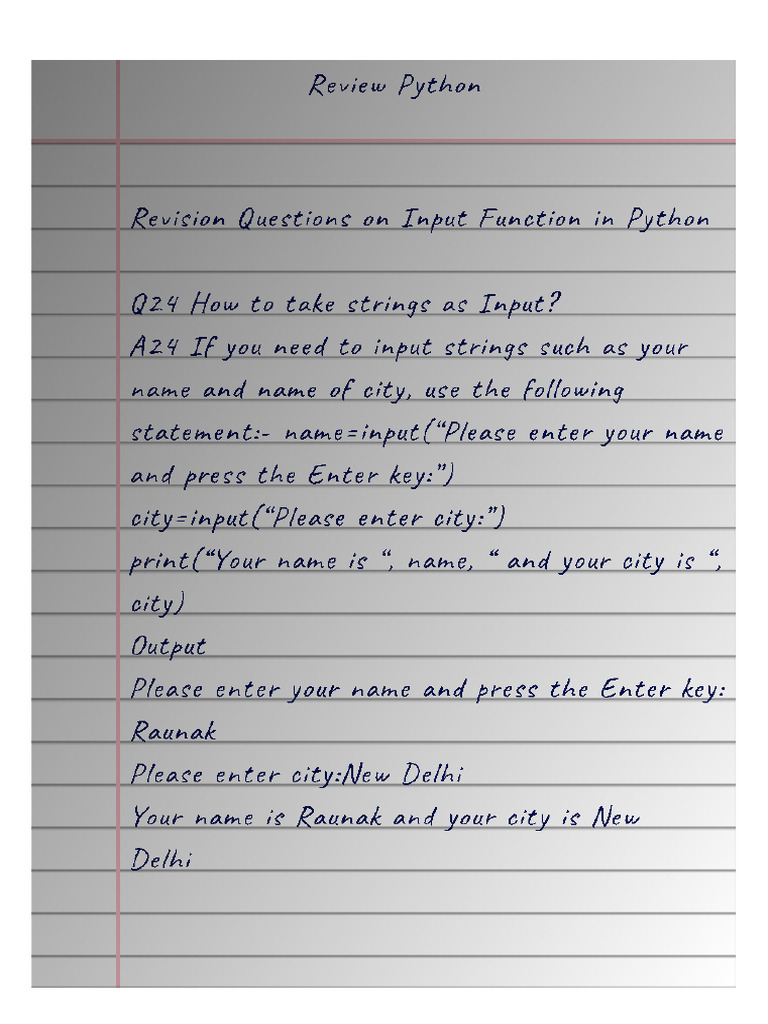 Review Python
Revision Questions on Input Function in Python
Q24 How to take strings as Input?
A24 If you need to input strings such as your
name and name of city, use the following
statement:- name=input(“Please enter your name
and press the Enter key:”)
city=input(“Please enter city:”)
print(“Your name is “, name, “ and your city is “,
city)
Output
Please enter your name and press the Enter key:
Raunak
Please enter city:New Delhi
Your name is Raunak and your city is New
Delhi